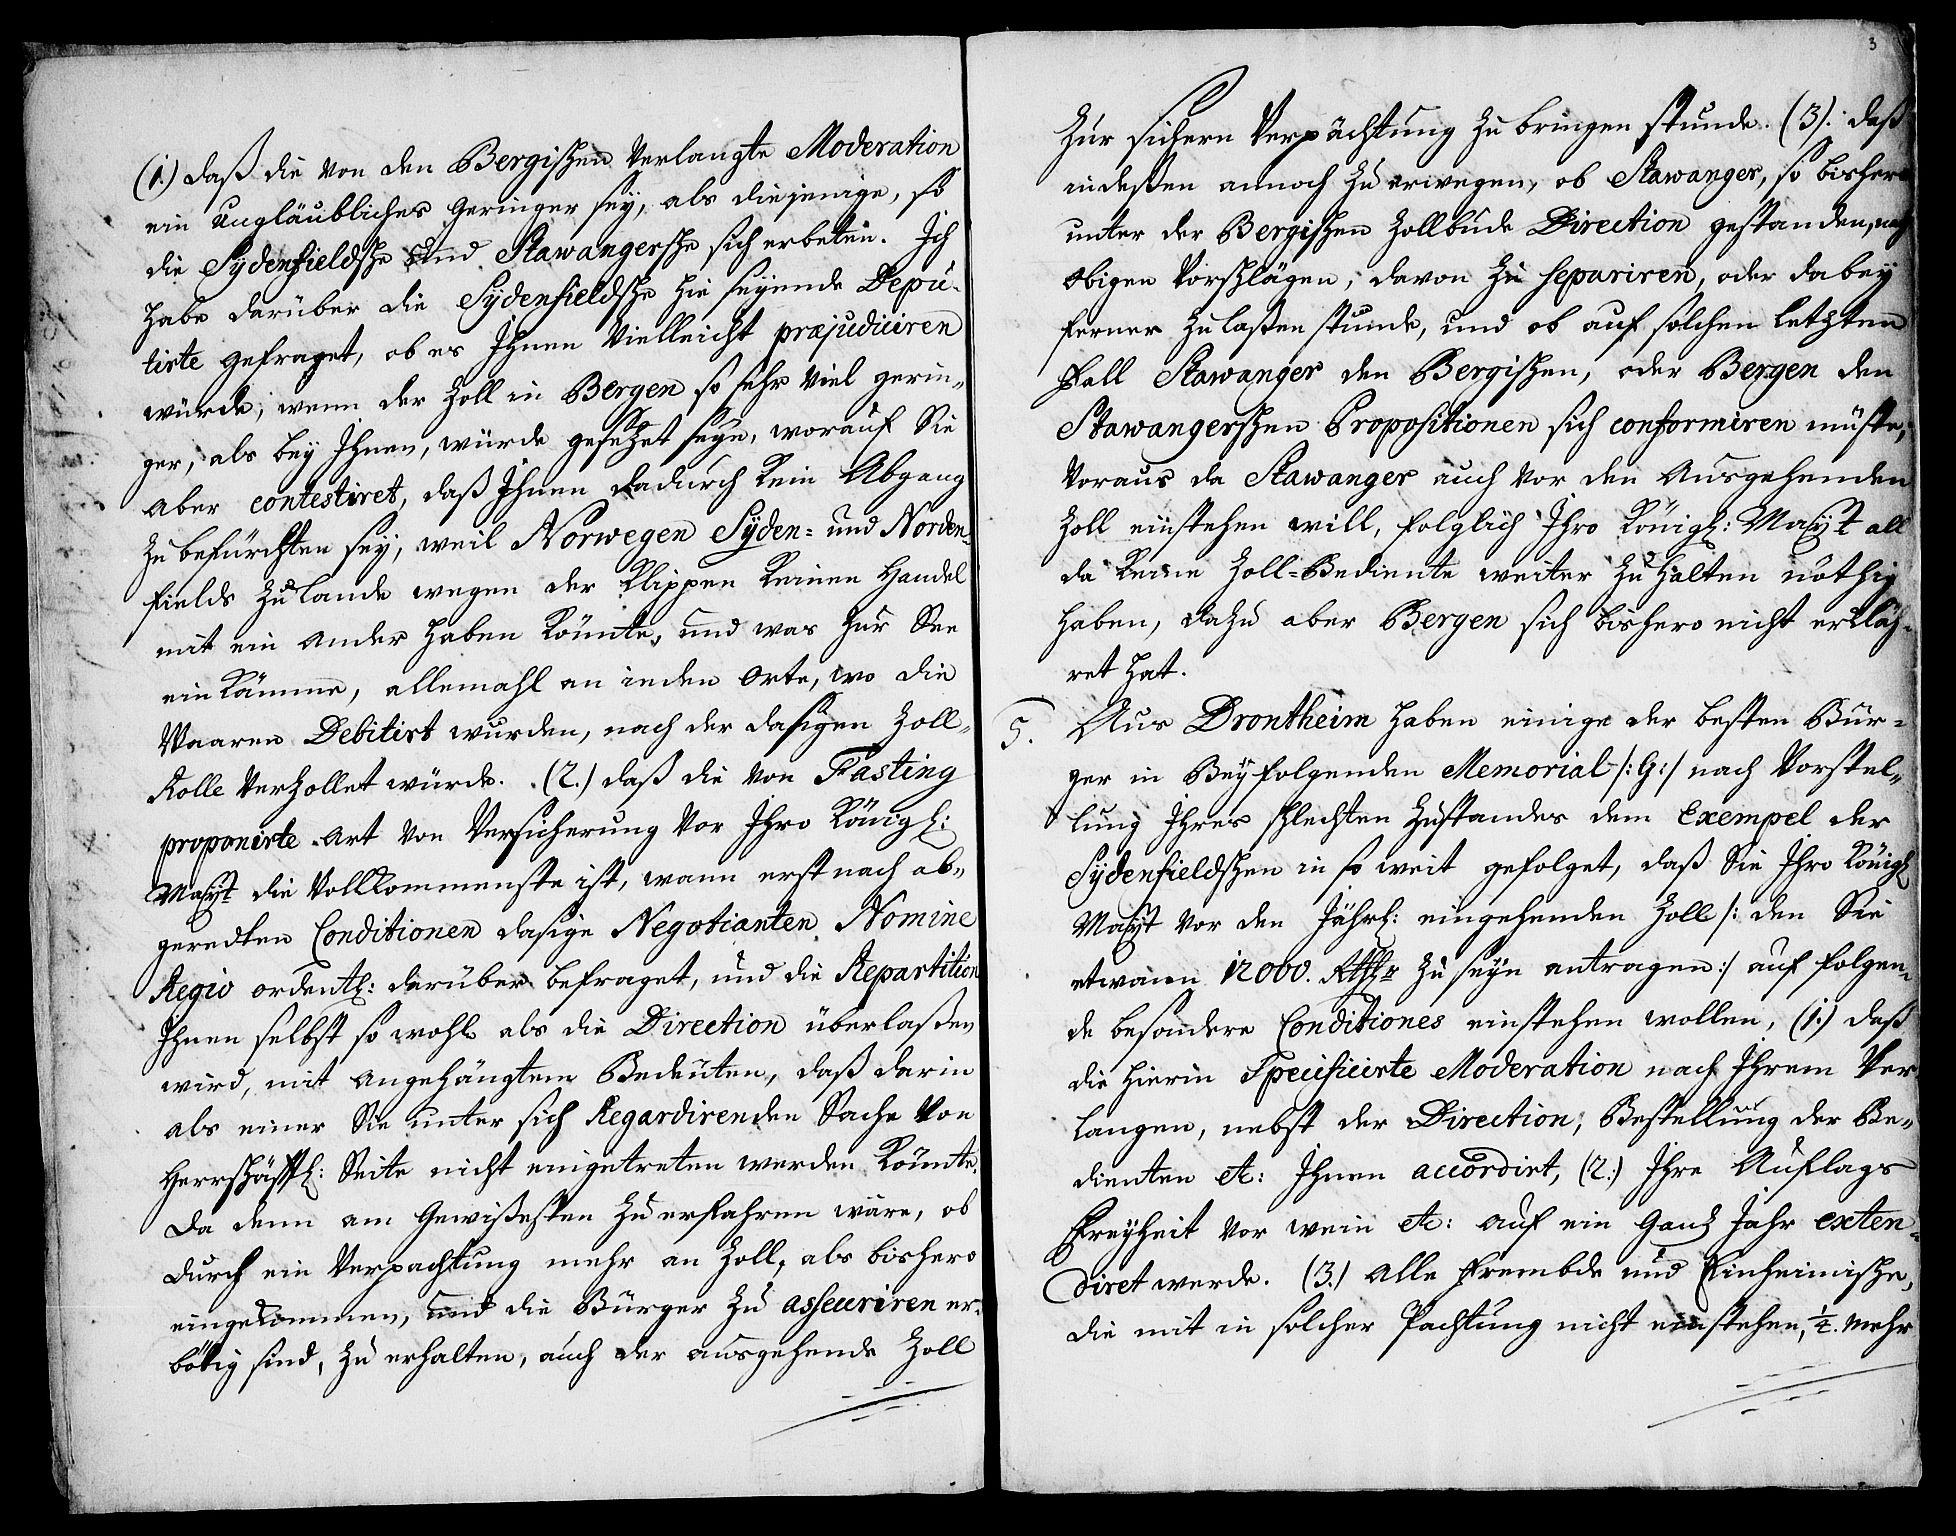 (1.) daß die von den Bergischen verlangte Moderation
ein ungläubliches geringer sey, als diejenige, so
die Sydenfieldsche und Stawangersche sich erbeten. Ich
habe darüber die Sydenfieldsche hie seyende Depu-
tirte gefraget, ob es Ihnen vielleicht præjudiciren
würde, wenn der Zoll in Bergen so sehr viel gerin-
ger, als bey Ihnen, würde gesetzet seyn, worauf Sie
aber contestiret, daß Ihnen dadurch kein Abgang
zu befürchten sey, weil Norwegen Syden- und Norden-
fields zu lande wegen der Klippen keinen Handel
mit ein ander haben könnte, und was zur See
ein käme, allemahl an jeden Orte, wo die
Waaren Debitirt wurden, nach der dasigen Zoll-
Rolle verzollet würde. (2.) daß die von Fasting
proponirte Art von Versicherung vor Ihro Königl:
Mayt die vollkommenste ist, wann erst nach ab-
geredten Conditionen dasige Negotianten Nomine
Regio ordentl: darüber befraget, und die Repartition
Ihnen selbst so wohl als die Direction überlaßen
wird, mit angehängtem Bedeuten, daß darin
als einer Sie unter sich Regardirenden Sache von
Herrschafftl: Seite nicht eingetreten werden könnte.
Da denn am gewißesten zu erfahren wäre, ob
durch ein Verpachtung mehr an Zoll, als bishero
eingekommen, und die Bürger zu asseuriren er-
bötig sind, zu erhalten, auch der ausgehende Zoll
3
zur sichern Verpächtung zu bringen stunde. (3). daß
indeßen annoch zu erwegen, ob Stawanger, so bishero
unter der Bergischen Zollbude Direction gestanden, nach
obigen Vorschlägen, davon zu separiren, oder dabey
ferner zu laßen stunde, und ob auf solchen letzten
Fall Stawanger den Bergischen, oder Bergen den
Stawangerschen Propositionen sich conformiren müste,
voraus da Stawanger auch vor den Ausgehenden
Zoll einstehen will, folglich Ihro Königl: Mayt all
da keine Zoll-Bediente weiter zu halten nöthig
haben, dazu aber Bergen sich bishero nicht erkläh-
ret hat.
5. Aus Drontheim haben einige der besten Bür-
ger in Beyfolgenden Memorial /:G:/ nach Vorstel-
lung Ihres schlechten Zustandes dem Exempel der
Sydenfieldschen in so weit gefolget, daß Sie Ihro Königl
Mayt vor den Jährl: eingehenden Zoll /: den Sie
etwann 12000. Rthlr zu seyn antragen:/ auf folgen-
de besondere Conditiones einstehen wollen, (1.) daß
die hierin Specificirte Moderation nach Ihrem Ver
langen, nebst der Direction, Bestellung der Be-
dienten etc: Ihnen accordirt, (2.) Ihre Auflags
Freyheit vor wein etc: auf ein Gantz Jahr exten-
diret werde. (3.) alle Frembde und Einheimische,
die mit in solcher Pachtung nicht einstehen, mehr